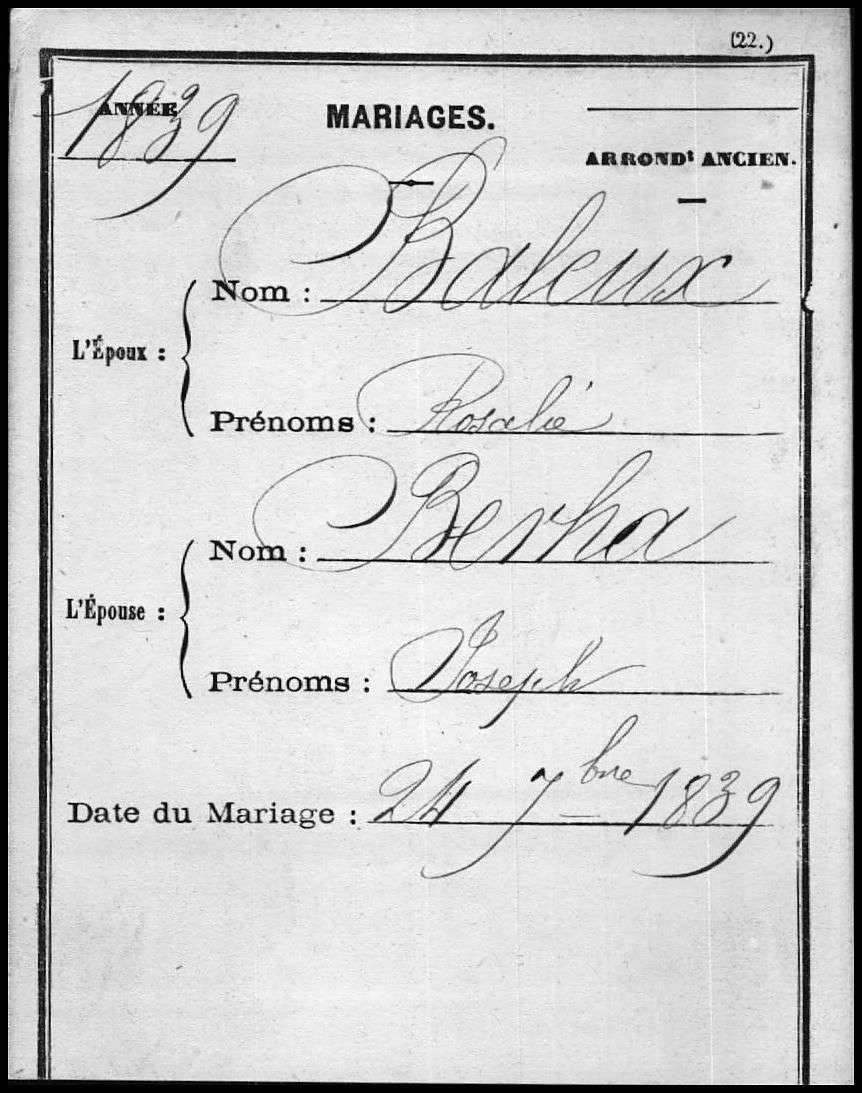 (22.)
ANNÉE
1839
MARIAGES.
ARRONDt ANCIEN.
L'Époux :
Nom : Baleux
Prénoms : Rosalie
L'Épouse :
Nom : Berha
Prénoms : Joseph
Date du Mariage : 24 7bre 1839